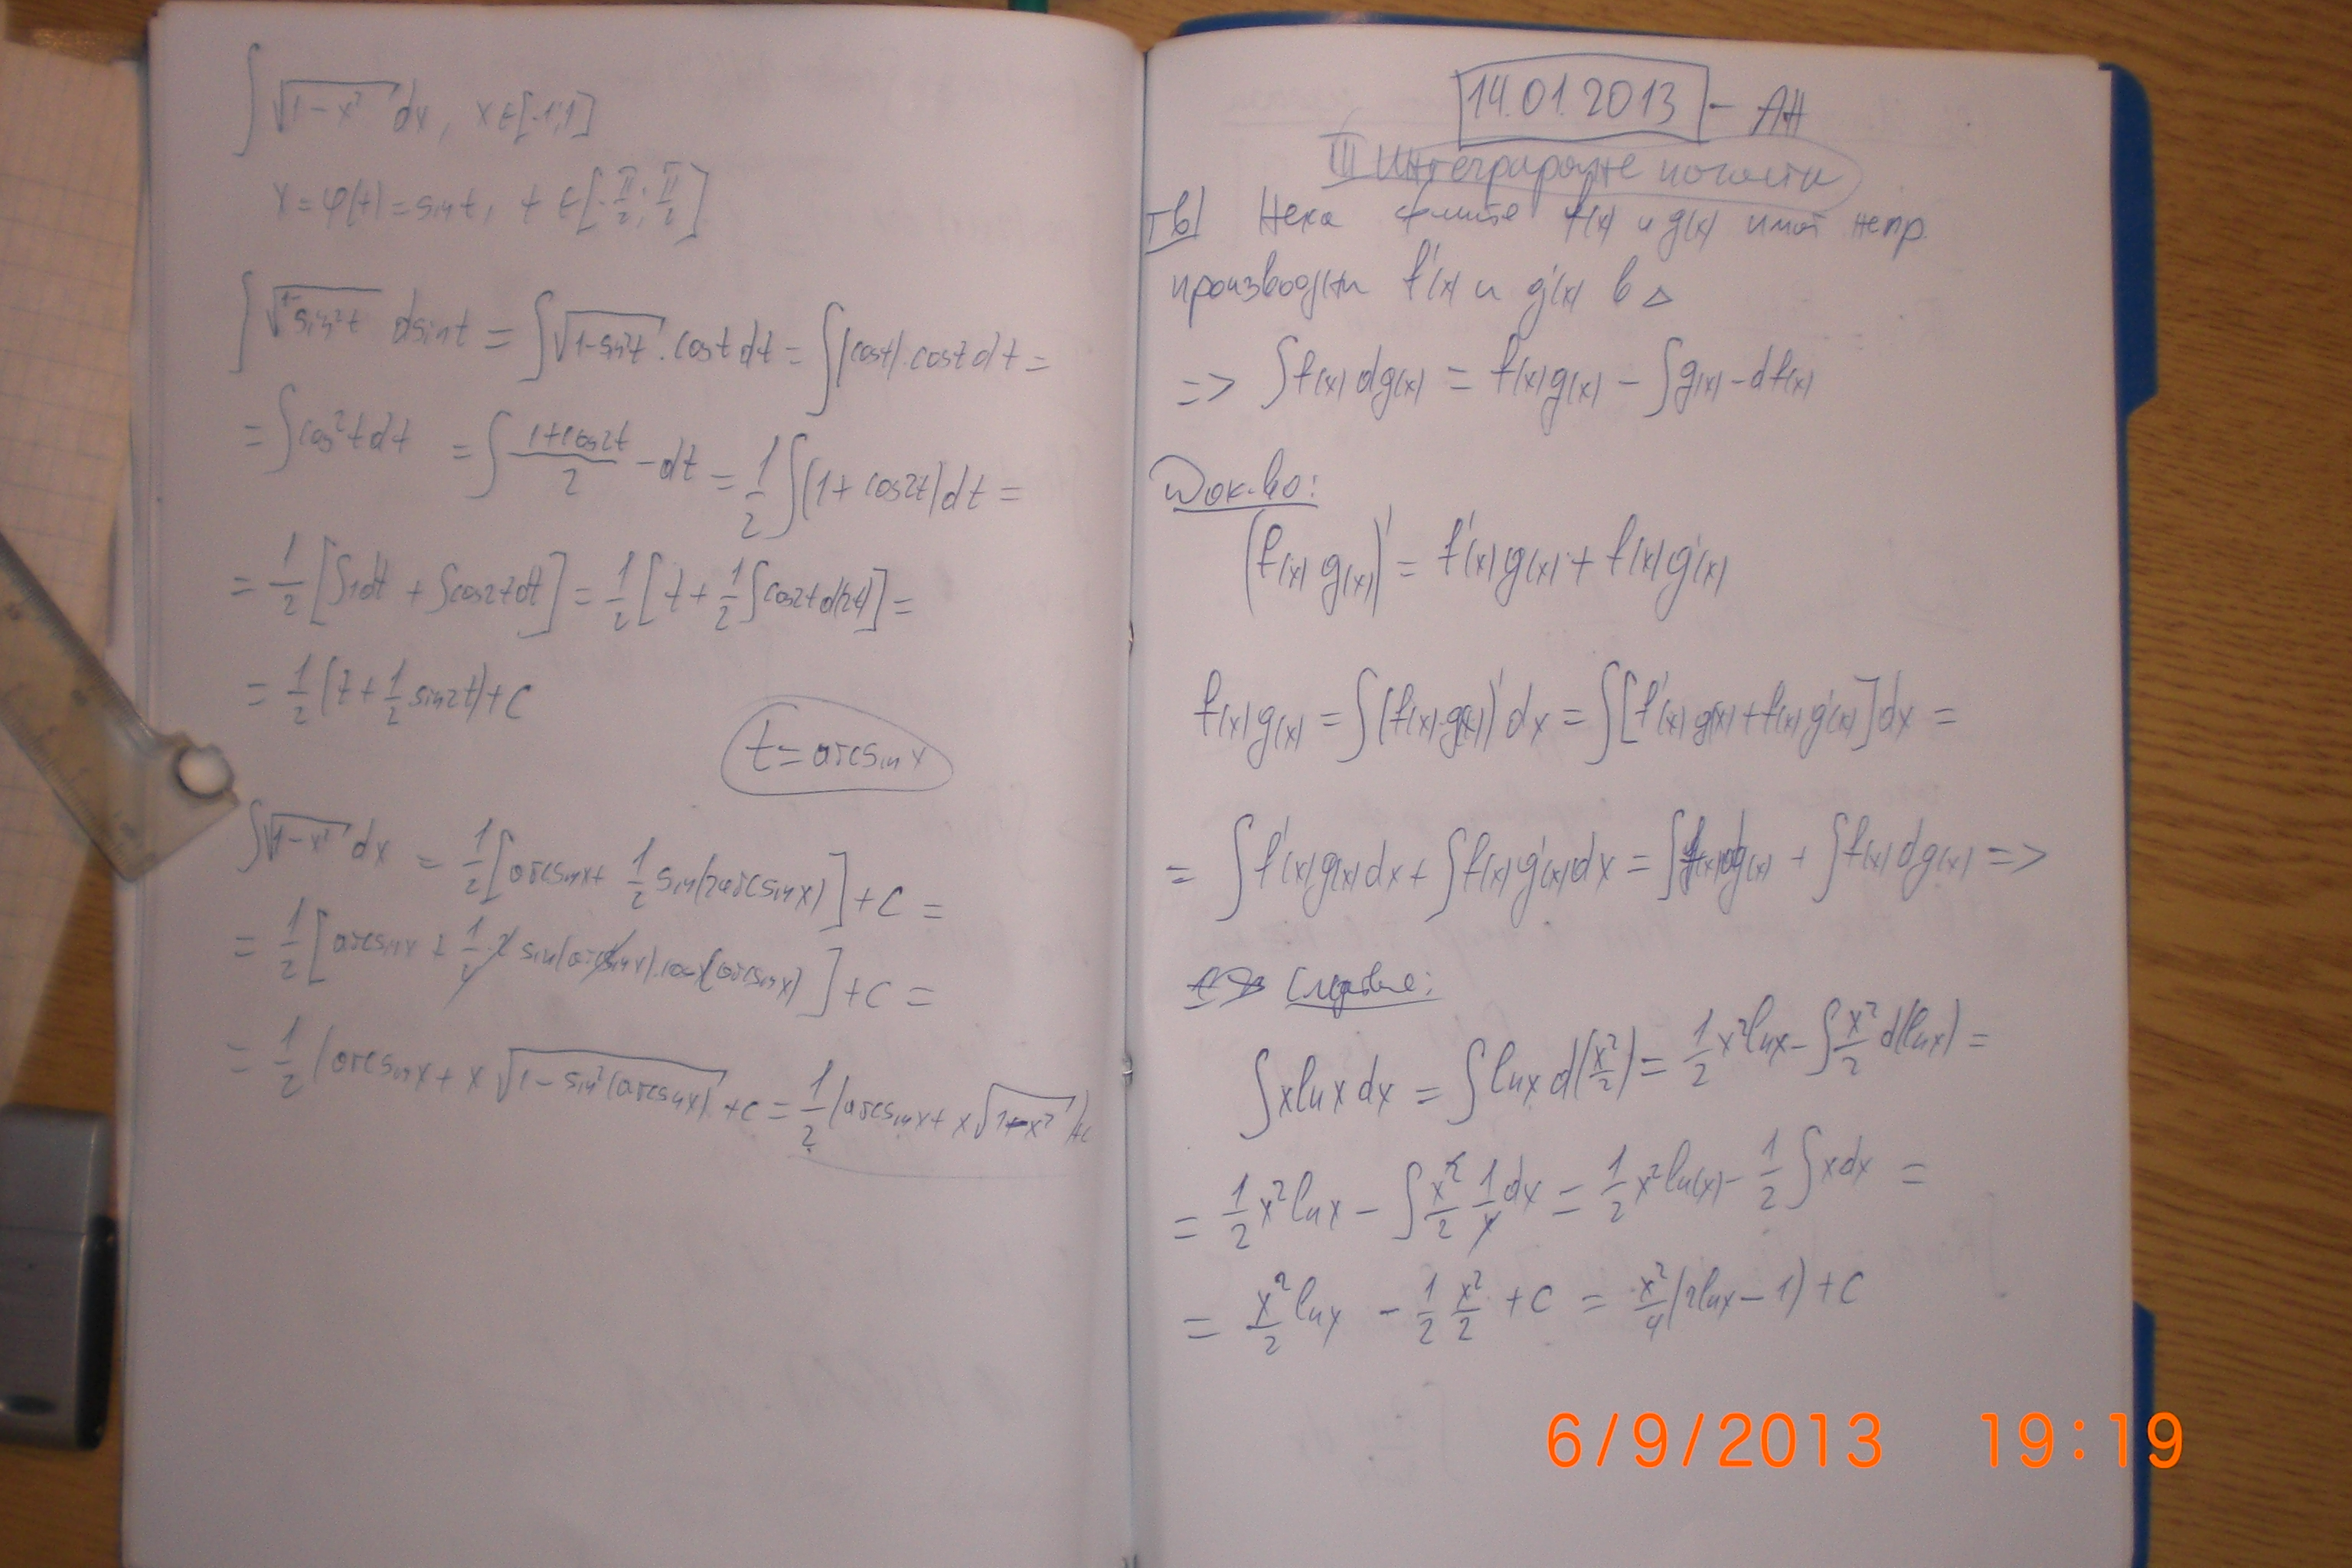 ∫ √(1-x²) dx, x∈[-1;1]
x = φ(t) = sin t, t∈[-π/2; π/2]
∫ √(1-sin²t) dsint = ∫ √(1-sin²t) . cost dt = ∫ |cost| . cost dt =
= ∫ cos²t dt = ∫ (1+cos2t)/2 - dt = 1/2 ∫ (1+cos2t) dt =
= 1/2 [∫1dt + ∫cos2tdt] = 1/2 [t + 1/2 ∫cos2t d(2t)] =
= 1/2 (t + 1/2 sin2t) + C
t = arcsinx
∫ √(1-x²) dx = 1/2 [arcsinx + 1/2 sin(2arcsinx)] + C =
= 1/2 [arcsinx + 1/2 . 2 sin(arcsinx).cos(arcsinx)] + C =
= 1/2 (arcsinx + x √(1-sin²(arcsinx)) + C = 1/2 (arcsinx + x √(1-x²)) + C
14.01.2013 - АН
III Интегриране по части
Тв) Нека ф-ите f(x) и g(x) имат непр.
производни f'(x) и g'(x) в Δ
=> ∫ f(x) dg(x) = f(x) g(x) - ∫ g(x) - df(x)
Док-во:
(f(x) g(x))' = f'(x) g(x) + f(x) g'(x)
f(x) g(x) = ∫ (f(x).g(x))' dx = ∫ [f'(x) g(x) + f(x) g'(x)] dx =
= ∫ f'(x) g(x) dx + ∫ f(x) g'(x) dx = ∫ + ∫ f(x) dg(x) =>
Следствие:
∫ xlnx dx = ∫ lnx d(x²/2) = 1/2 x² lnx - ∫ x²/2 d(lnx) =
= 1/2 x² lnx - ∫ x²/2 1/x dx = 1/2 x² ln(x) - 1/2 ∫ xdx =
= x²/2 lnx - 1/2 x²/2 + C = x²/4 (2lnx - 1) + C
6/9/2013 19:19